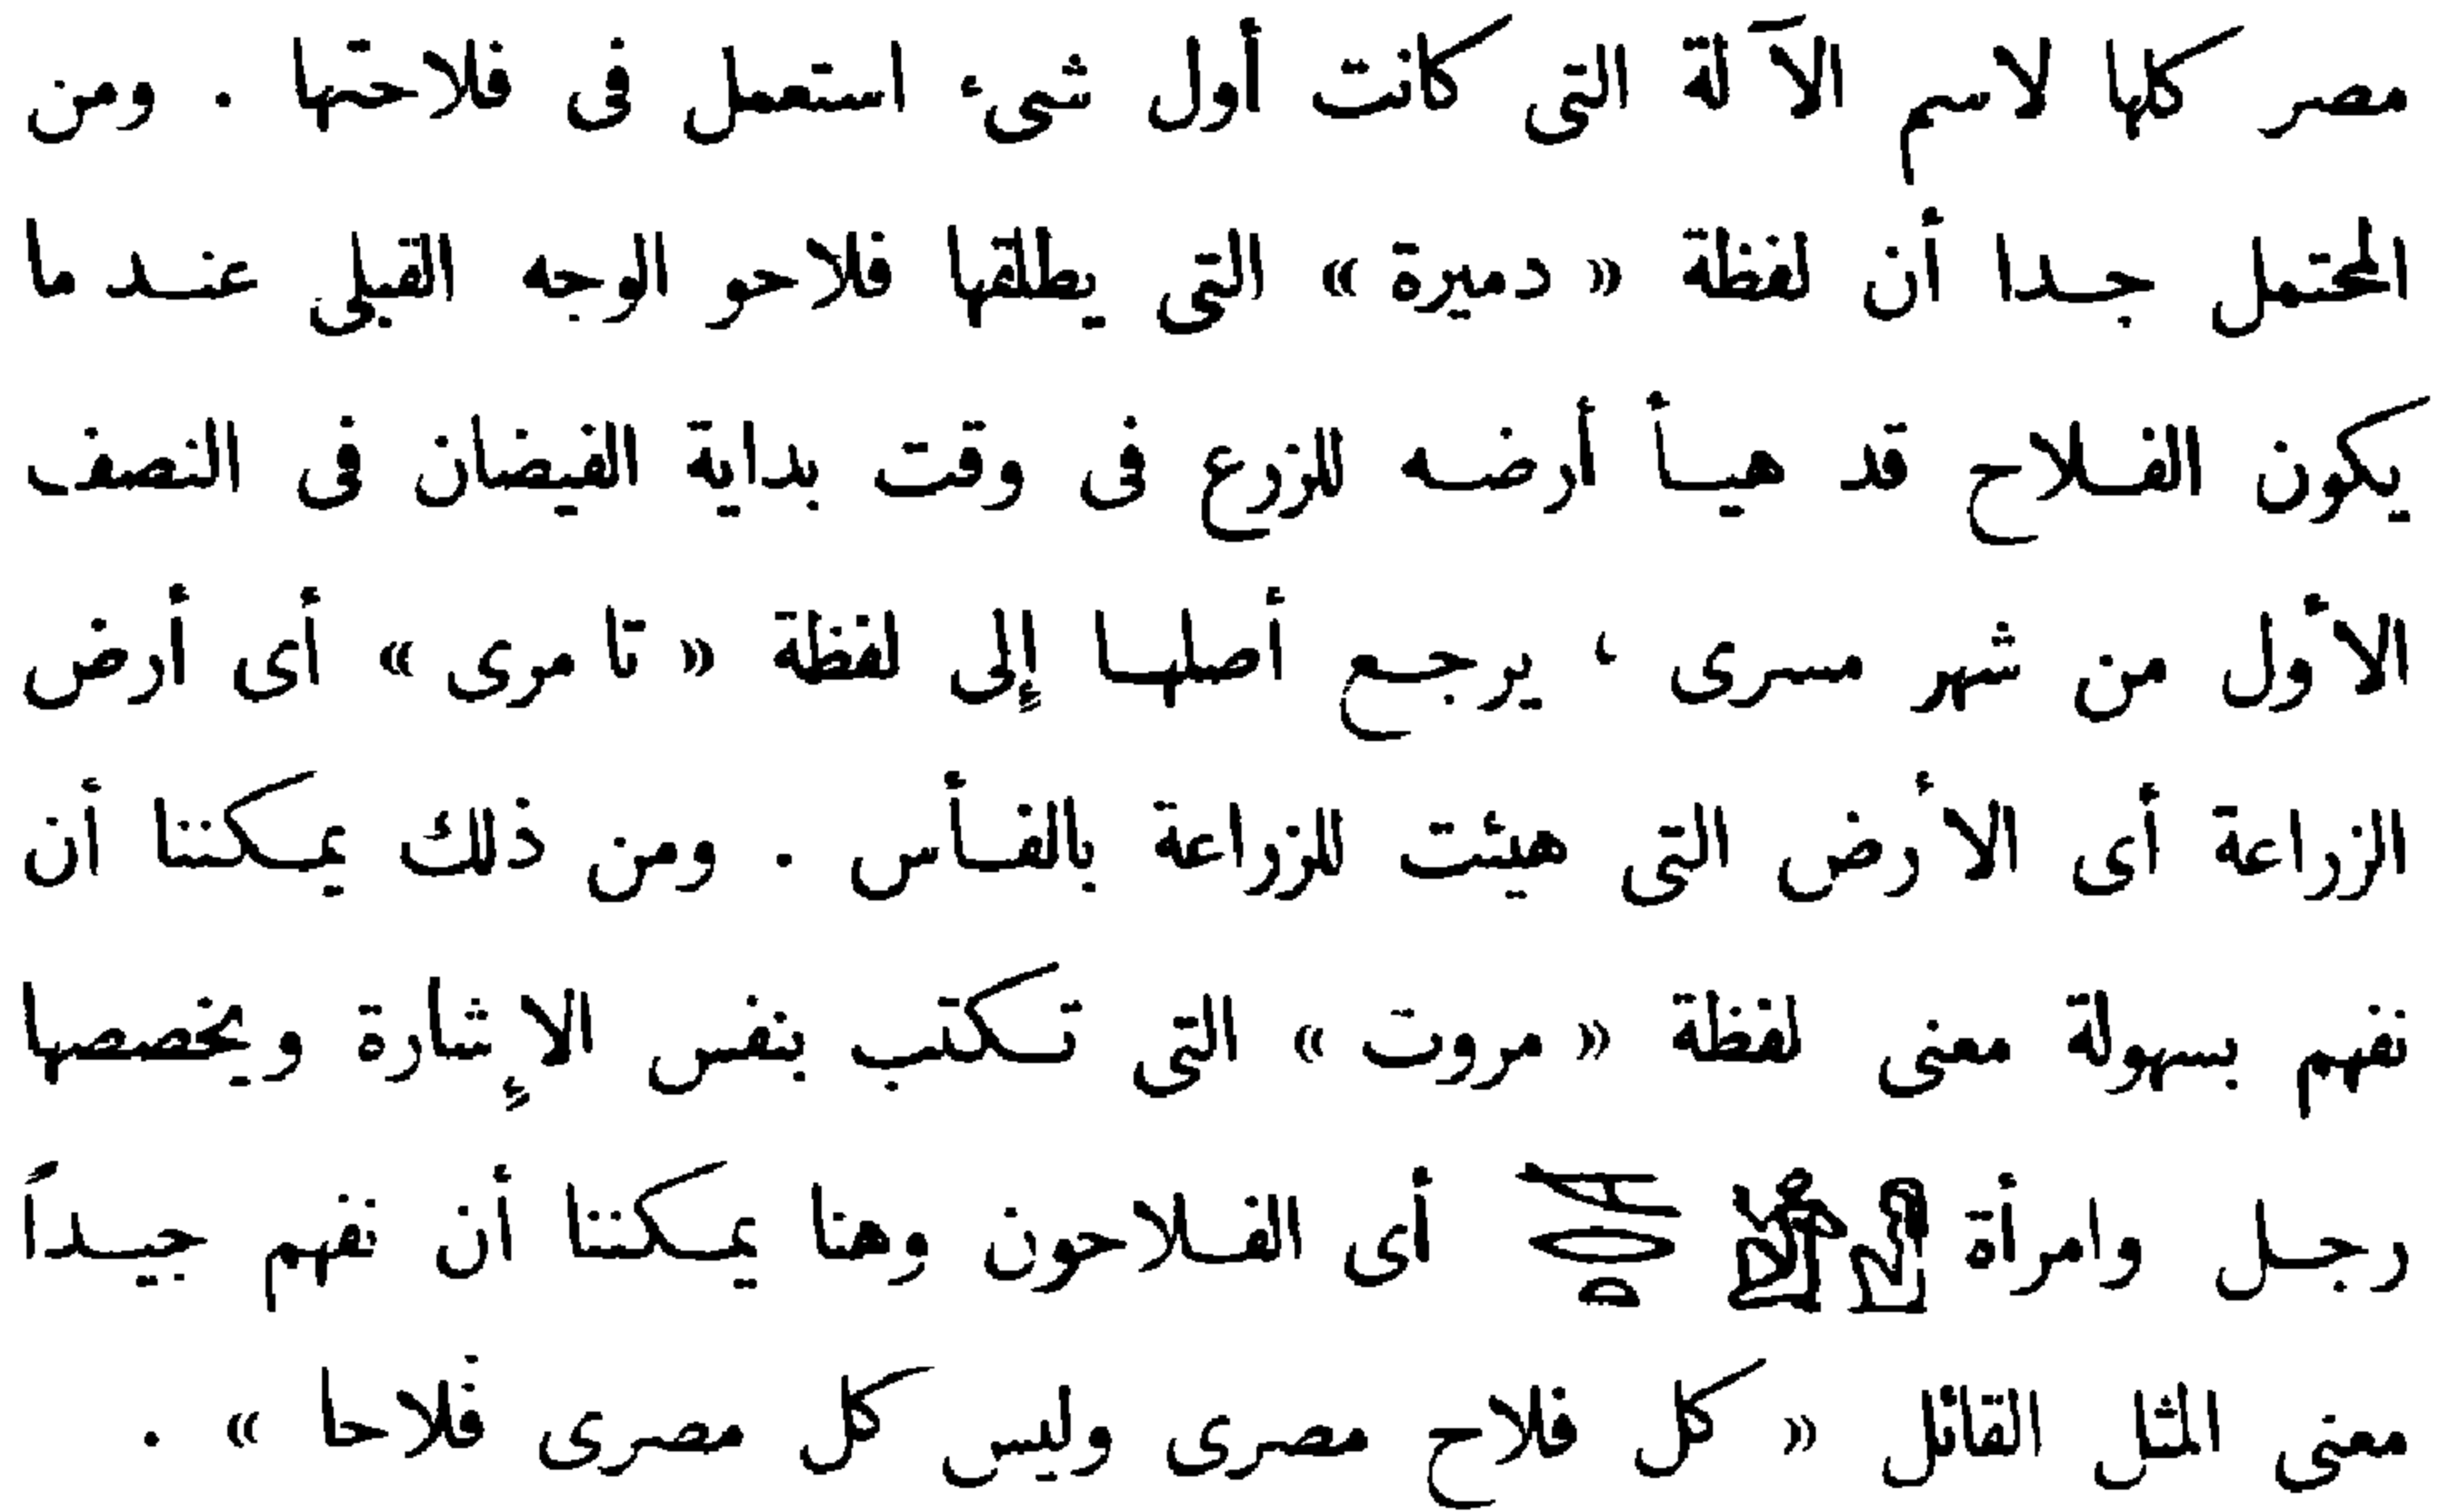 مصر كلها لاسم الآلة التى كانت أول شىء استعمل فى فلاحتها . ومن
المحتمل جدا أن لفظة « دميرة » التى يطلقها فلاحو الوجه القبلى عند ما
يكون الفلاح قد هيأ أرضه للزرع فى وقت بداية الفيضان فى النصف
الأول من شهر مسرى ، يرجع أصلها إلى لفظة « تا مرى » أى أرض
الزراعة أى الأرض التى هيئت للزراعة بالفأس . ومن ذلك يمكننا أن
نفهم بسهولة معنى لفظة « مروت » التى تكتب بنفس الإشارة ويخصصها
رجل وامرأة 𓀀𓁐 𓌸𓂋𓏏 أى الفلاحون وهنا يمكننا أن نفهم جيداً
معنى المثل القائل « كل فلاح مصرى وليس كل مصرى فلاحا » .